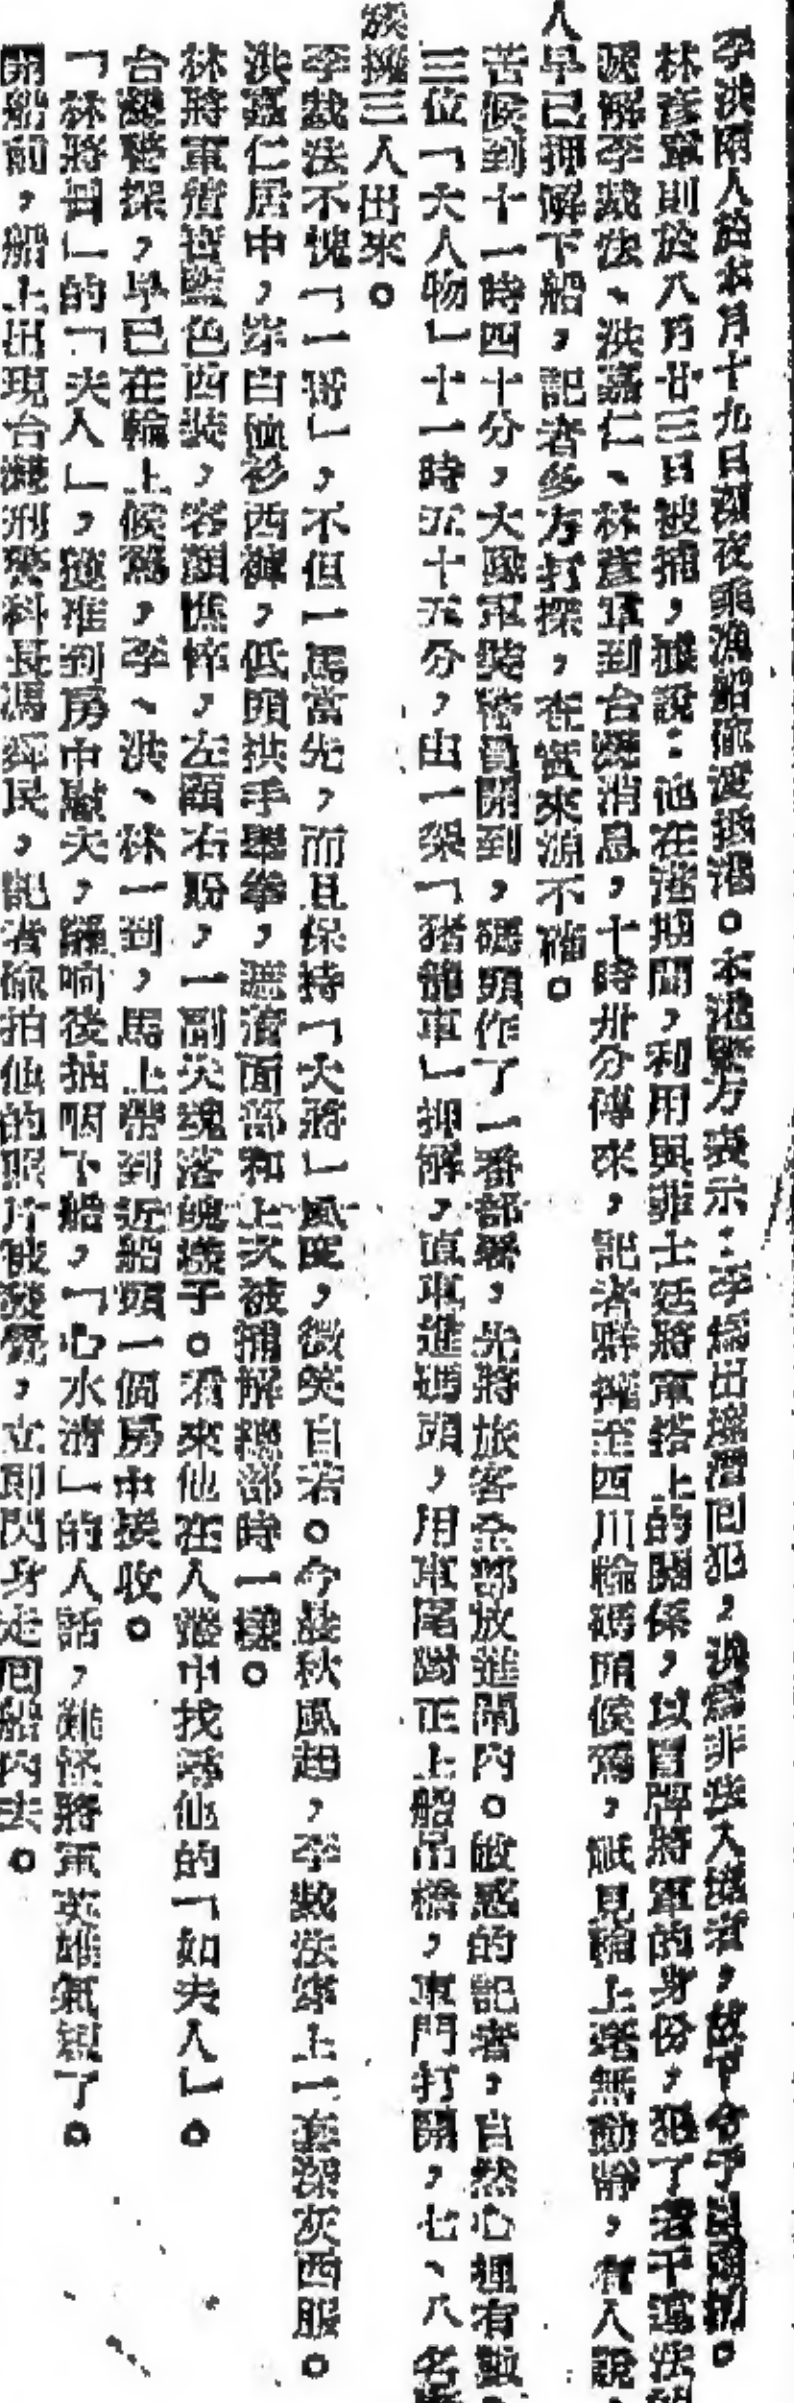 李洪兩人於本月十九日深夜乘漁船偷渡抵港。本港警方表示:李爲出境潛回犯,洪爲非法入境者,故下令予以
林彥軍則於八月廿三日被捕,據說:他在港期間,利用與菲士廷將軍搭上的關係,以冒牌將軍的身份,犯了若干違法
號解李裁法、洪嘉仁、林彥軍到台灣消息,十時卅分傳來,記者群擁至四川輪碼頭候焉,祇見輪上毫無動靜,有人說,
人早已押解下船,記者多方打探,在證來源不確。
苦候到十一時四十分,大隊軍裝警員開到,碼頭作了一番部署,先將旅客全部放進閘內。敏感的記者,自然心裡有數,
三位「大人物」十一時五十五分,由一架「猪籠車」押解,直車進碼頭,用車尾對正上船吊橋,車門打開,七、八名
簇擁三人出來。
李裁法不愧「一哥」,不但一馬當先,而且保持「大將」風度,微笑自若。今晨秋風起,李裁法穿上一套深灰西服。
洪嘉仁居中,穿白恤衫西褲,低頭拱手舉拳,遮着面部和上次被捕解總部時一樣。
林將軍穿著藍色西裝,容顏憔悴,左顧右盼,一副失魂落魄樣子。看來他在人叢中找尋他的「如夫人」。
台灣警探,早已在輪上候焉,李、洪、林一到,馬上帶到近船頭一個房中接收。
「林將軍」的「夫人」,獲准到房中獻夫,幾响後抽咽下船,「心水清」的人話,難怪將軍英雄氣短了。
開船前,船上出現台灣刑警科長馮經民,記者偷拍他的照片被發覺,立即閃身走回船內去。